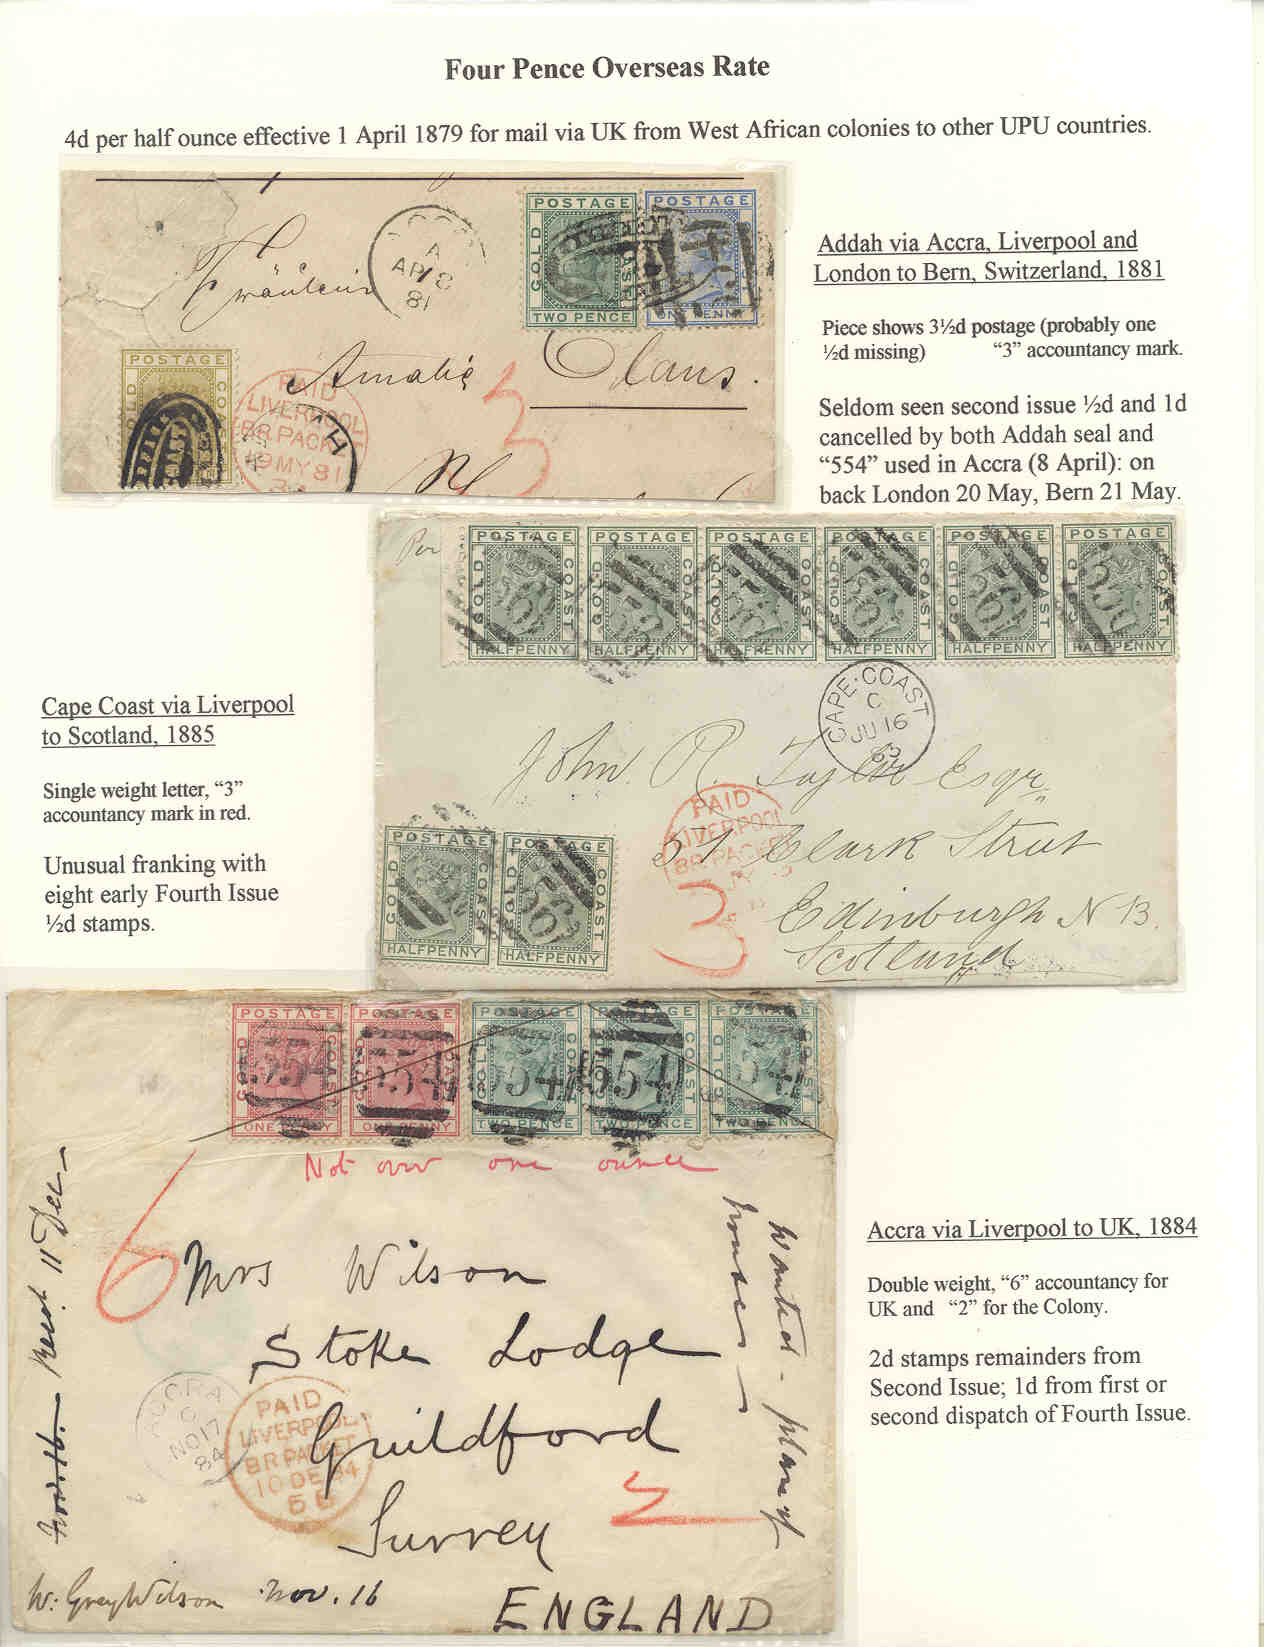 Four Pence Overseas Rate
4d per half ounce effective 1 April 1879 for mail via UK from West African colonies to other UPU countries.
POSTAGE
GOLD COAST
TWO PENCE
POSTAGE
ONE PENNY
A
AP 8
81
Fräulein
Amalie Claus.
POSTAGE
GOLD COAST
PAID
LIVERPOOL
BR. PACKET
19 MY 81
3
Addah via Accra, Liverpool and
London to Bern, Switzerland, 1881
Piece shows 3½d postage (probably one
½d missing) “3” accountancy mark.
Seldom seen second issue ½d and 1d
cancelled by both Addah seal and
“554” used in Accra (8 April): on
back London 20 May, Bern 21 May.
Per
POSTAGE POSTAGE POSTAGE POSTAGE POSTAGE POSTAGE
GOLD COAST GOLD COAST GOLD COAST GOLD COAST GOLD COAST GOLD COAST
HALFPENNY HALFPENNY HALFPENNY HALFPENNY HALFPENNY HALFPENNY
CAPE·COAST
C
JU 16
85
John R. Taylor Esqr
57 Clark Street
Edinburgh N B.
Scotland
PAID
LIVERPOOL
BR. PACKET
3
POSTAGE POSTAGE
GOLD COAST GOLD COAST
HALFPENNY HALFPENNY
Cape Coast via Liverpool
to Scotland, 1885
Single weight letter, “3”
accountancy mark in red.
Unusual franking with
eight early Fourth Issue
½d stamps.
POSTAGE POSTAGE POSTAGE POSTAGE POSTAGE
GOLD COAST GOLD COAST GOLD COAST GOLD COAST GOLD COAST
554 554 554 554 554
ONE PENNY ONE PENNY TWO PENCE TWO PENCE TWO PENCE
Not over one ounce
6
Mrs Wilson
Stoke Lodge
Guildford
Surrey
ENGLAND
Wanted - plan of
houses
Nov. 16. Recd 11 Dec
ACCRA
C
NO 17
84
PAID
LIVERPOOL
BR. PACKET
10 DE 84
5 E
2
W: Grey Wilson Nov. 16
Accra via Liverpool to UK, 1884
Double weight, “6” accountancy for
UK and “2” for the Colony.
2d stamps remainders from
Second Issue; 1d from first or
second dispatch of Fourth Issue.